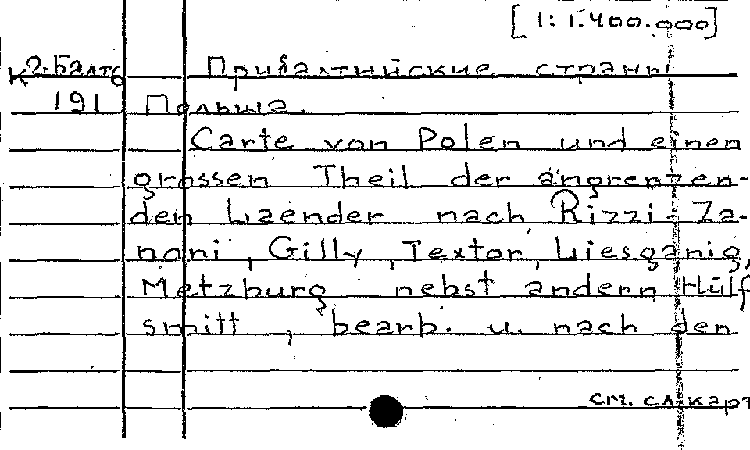 [1:1.400.000]
К 2-Балто Прибалтийские страны
191 Польша.
Carte von Polen und einen
grossen Theil der angrenzen-
den Laender nach Rizzi-Za-
noni, Gilly, Textor, Liesganig,
Metzburg nebst andern Hülf
smitt, bearb. u. nach den
см. сл. карт